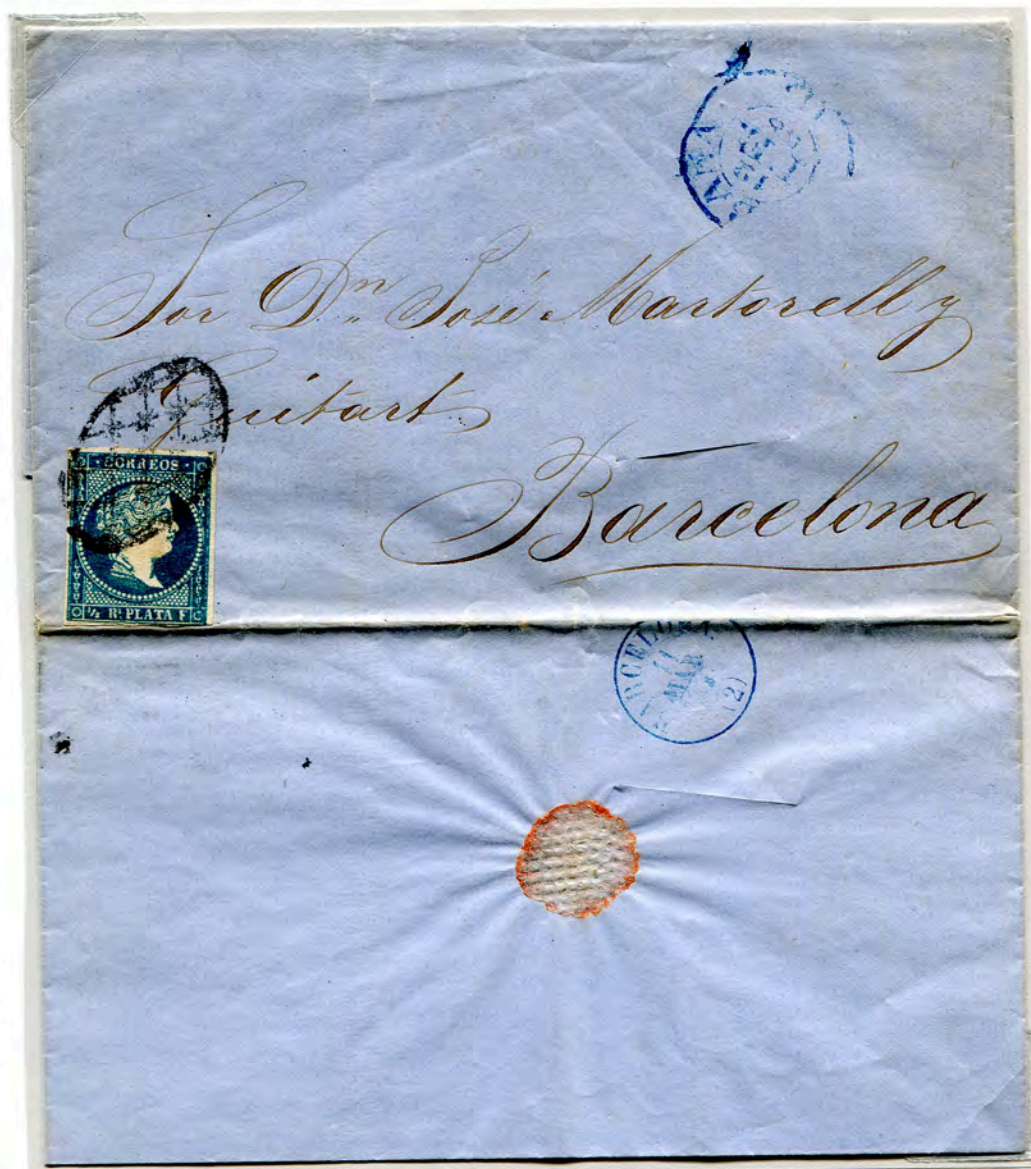 Sor Dn José Martorell y
Guitart
Barcelona
CORREOS
½ Rl PLATA F
BARCELONA
11
MAR
(2)